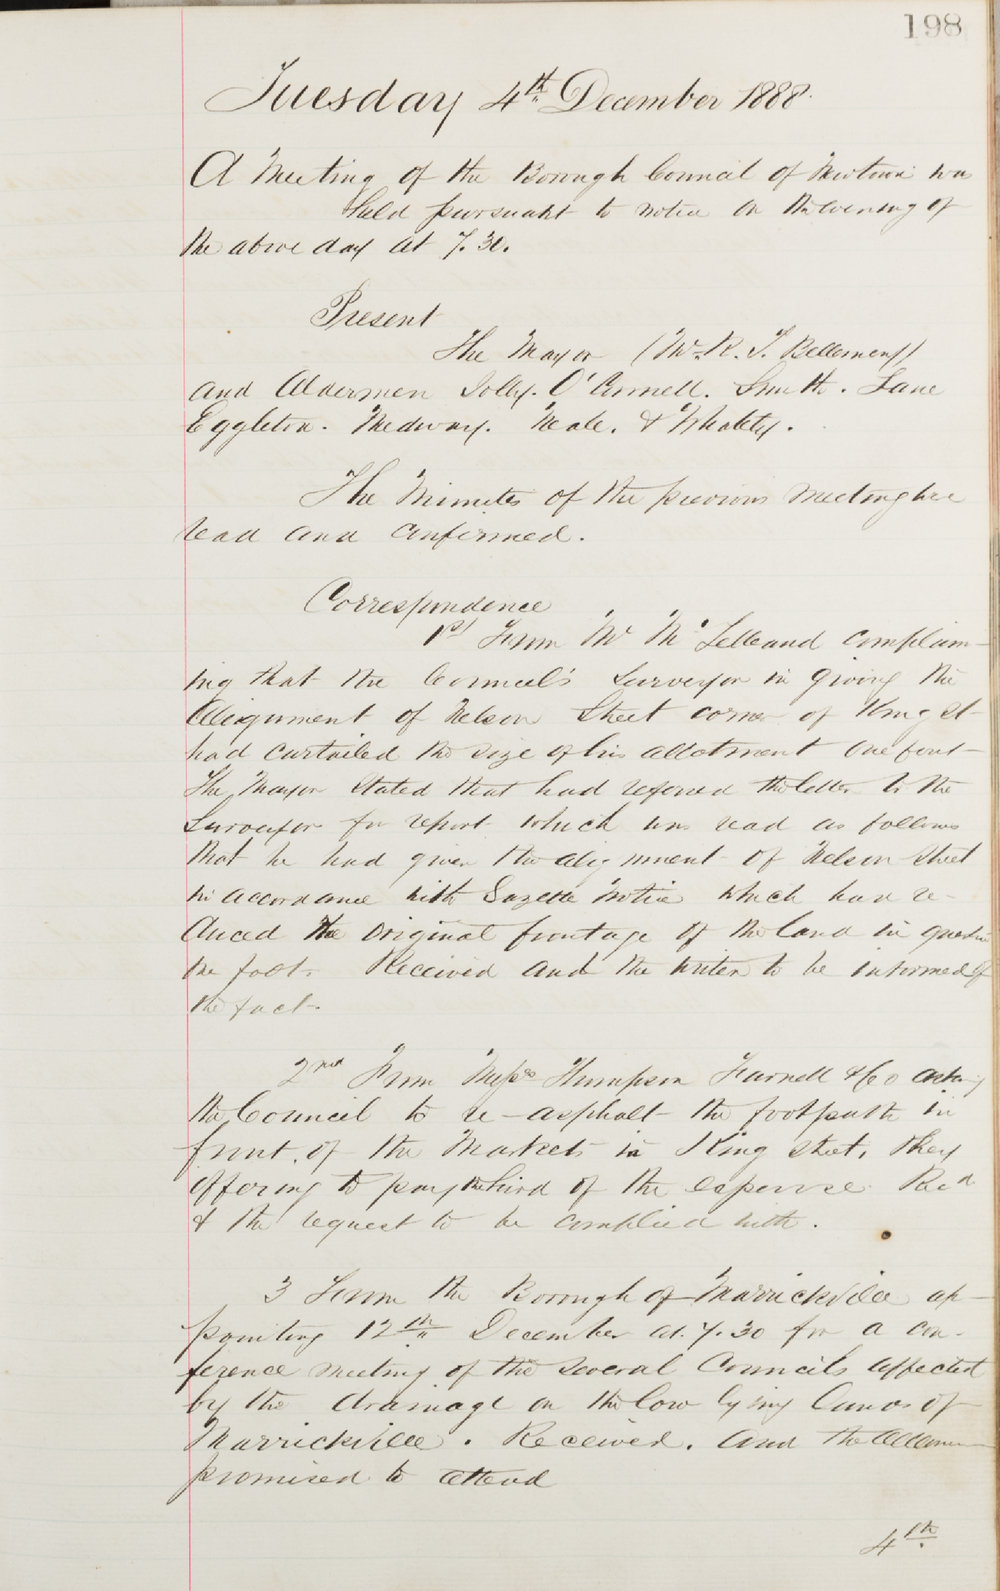 198
Tuesday 4th December 1888
A Meeting of the Borough Council of Newtown was
held pursuant to notice on the evening of
the above day at 7.30.
Present
The Mayor (Mr. R. T. Bellemey)
and Aldermen Jolly. O'Connell. Smith. Lane
Eggleton. Medway. Neale. & Whately.
The Minutes of the previous meeting were
read and confirmed.
Correspondence
1st From Mr McLelleand complain-
ing that the Council's Surveyor in giving the
Alignment of Nelson Street corner of King st
had curtailed the size of his allotment one foot
The Mayor stated that had refered the letter to the
Surveyor for report which was read as follows
that he had given the alignment of Nelson Street
in accordance with Gazette Notice which had re-
duced the original frontage of the land in question
one foot. Received and the writer to be informed of
the fact.
2nd From Messrs Thompson Farnell & Co asking
the Council to re-asphalt the footpath in
front of the Markets in King street, they
offering to pay the third of the expense Recd
& the request to be complied with.
3 From the Borough of Marrickville ap-
pointing 12th December at 7.30 for a con-
ference meeting of the several Councils affected
by the drainage on the low lying lands of
Marrickville. Received. and the Aldermen
promised to attend
4th